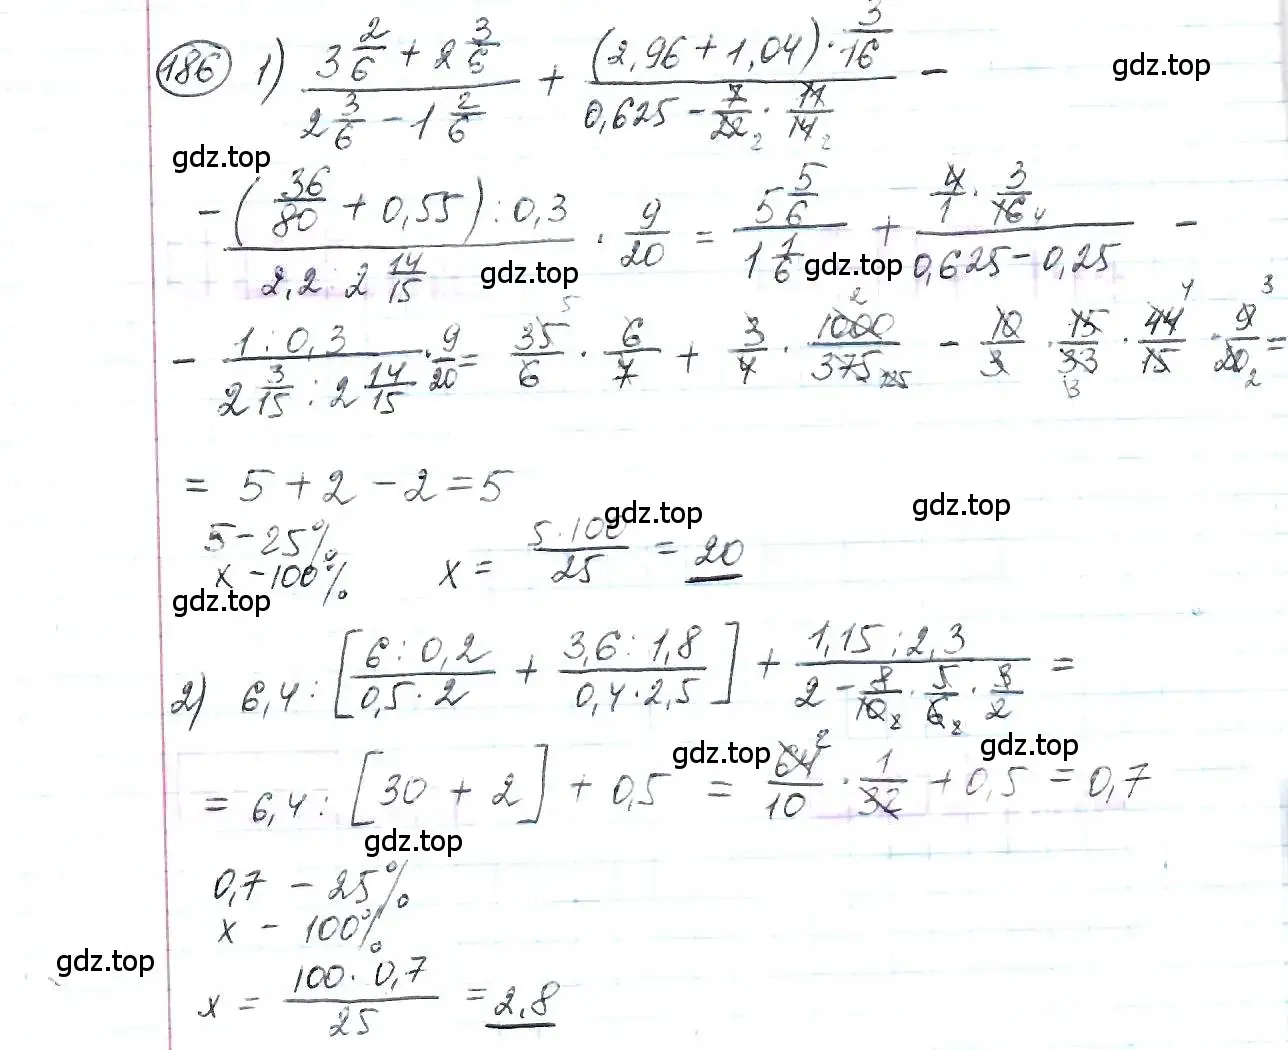 186 1) (3 2/6 + 2 3/6)/(2 3/6 − 1 2/6) + ((2,96 + 1,04) · 3/16)/(0,625 − 7/22 2 · 11/14 2) −
gdz.top
gdz.top
− ((36/80 + 0,55) : 0,3)/(2,2 : 2 14/15) · 9/20 = (5 5/6)/(1 1/6) + (4/1 · 3/16 4)/(0,625 − 0,25) −
gdz.top gdz.top
− (1 : 0,3)/(2 3/15 : 2 14/15) · 9/20 = 35 5/6 · 6/7 + 3/4 · 1000 2/375 125 − 10/3 · 15/33 3 · 44 4/15 · 9 3/20 2 =
= 5 + 2 − 2 = 5
gdz.top gdz.top
5 − 25%
x − 100% x = (5 · 100)/25 = 20
gdz.top
2) 6,4 : [(6 : 0,2)/(0,5 · 2) + (3,6 : 1,8)/(0,4 · 2,5)] + (1,15 : 2,3)/(2 − 8/10 2 · 5/6 2 · 3/2) =
gdz.top gdz.top
= 6,4 : [30 + 2] + 0,5 = 64 2/10 · 1/32 + 0,5 = 0,7
gdz.top
0,7 − 25%
x − 100%
gdz.top
x = (100 · 0,7)/25 = 2,8